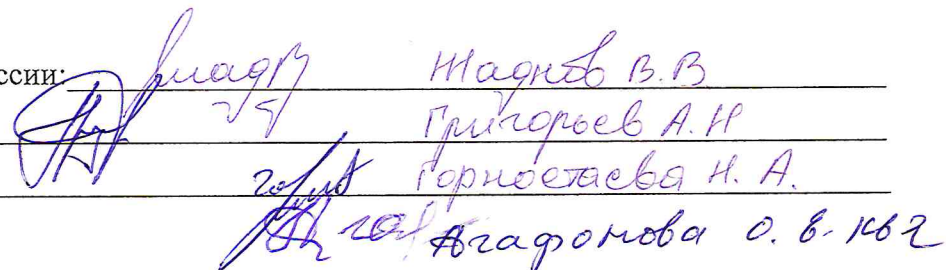 ссии: Жаднов В. В
Григорьев А. Н
Горностаева Н. А.
Агафонова О. В. кв 2